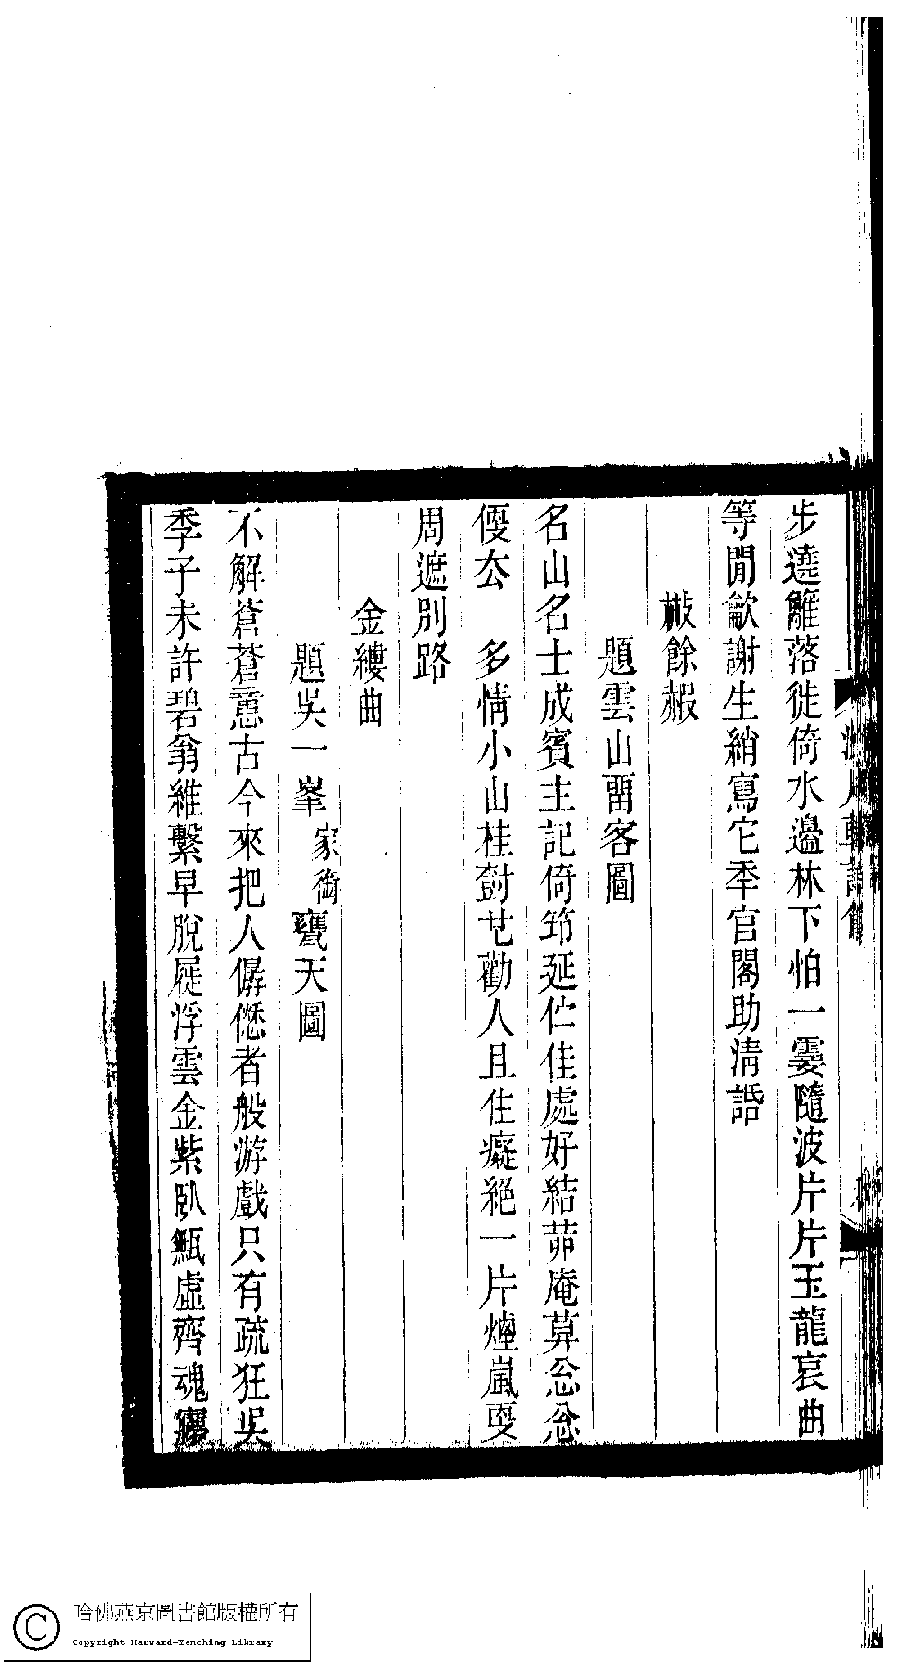 步遶籬落徙倚水邊林下怕一霎隨波片片玉龍哀曲
等閒歙謝生綃寫它秊官閣助清話
題雲山畱客圖
名山名士成賓主記倚筇延伫佳處好結茆庵莫忩忩
多情小山桂對廿勸人且住癡絕一片煙嵐
周遮別路
金縷曲
題吳一峯家衒甕天圖
不解蒼蒼意古今來把人僝僽者般游戲只有疏狂吳
季子未許碧翁維繫早脫屣浮雲金紫臥甒虛齊魂
哈佛燕京圖書館版權所有
Copyright Harvard-Yenching Library